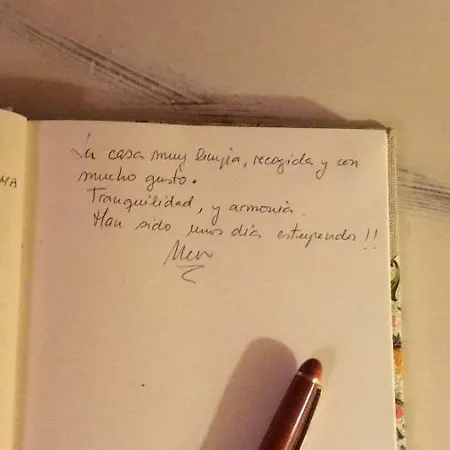 La casa muy limpia, recogida y con
mucho gusto.
Tranquilidad, y armonía.
Han sido unos días estupendos!!
MA